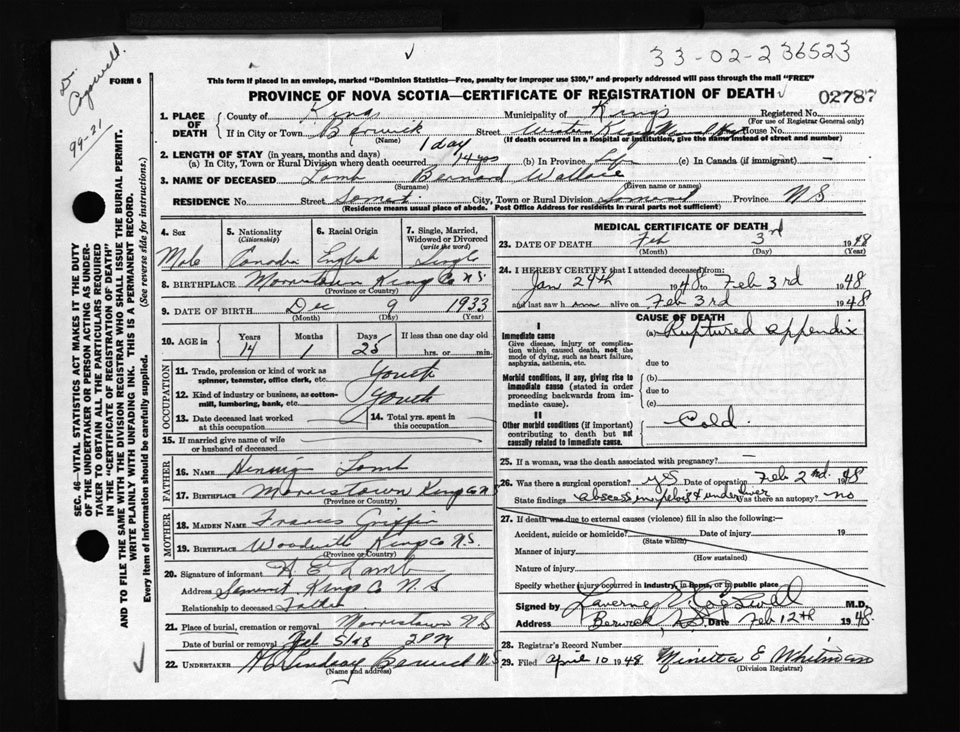 33-02-2 36523
D. Cogswell.
99-21
FORM 6
This form if placed in an envelope, marked "Dominion Statistics—Free, penalty for improper use $300," and properly addressed will pass through the mail "FREE"
PROVINCE OF NOVA SCOTIA—CERTIFICATE OF REGISTRATION OF DEATH
02787
SEC. 46—VITAL STATISTICS ACT MAKES IT THE DUTY
OF THE UNDERTAKER OR PERSON ACTING AS UNDER-
TAKER TO OBTAIN ALL THE PARTICULARS REQUIRED
IN THE "CERTIFICATE OF REGISTRATION OF DEATH"
AND TO FILE THE SAME WITH THE DIVISION REGISTRAR WHO SHALL ISSUE THE BURIAL PERMIT.
WRITE PLAINLY WITH UNFADING INK. THIS IS A PERMANENT RECORD.
Every item of Information should be carefully supplied. (See reverse side for instructions.)
1. PLACE OF DEATH County of Kings Municipality of Kings Registered No.
(For use of Registrar General only)
If in City or Town Berwick Street Western Kings Memorial House No.
(Name) (If death occurred in a hospital or institution, give the name instead of street and number)
1 day
2. LENGTH OF STAY (in years, months and days)
(a) In City, Town or Rural Division where death occurred 14 yrs (b) In Province Life (c) In Canada (if immigrant) —
3. NAME OF DECEASED Lamb Bernard Wallace
(Surname) (Given name or names)
RESIDENCE No. Street Somerset City, Town or Rural Division Somerset Province N S
(Residence means usual place of abode. Post Office Address for residents in rural parts not sufficient)
4. Sex Male
5. Nationality (Citizenship) Canadian
6. Racial Origin English
7. Single, Married, Widowed or Divorced (write the word) Single
8. BIRTHPLACE Morristown Kings Co N.S.
(Province or Country)
9. DATE OF BIRTH Dec 9 1933
(Month) (Day) (Year)
10. AGE in Years 14 Months 1 Days 25 If less than one day hrs. or min.
OCCUPATION
11. Trade, profession or kind of work as spinner, teamster, office clerk, etc. Youth
12. Kind of industry or business, as cotton-mill, lumbering, bank, etc. Youth
13. Date deceased last worked at this occupation
14. Total yrs. spent in this occupation
15. If married give name of wife or husband of deceased
FATHER
16. NAME Lamb
17. BIRTHPLACE Morristown Kings Co N S
(Province or Country)
MOTHER
18. MAIDEN NAME Frances Griffin
19. BIRTHPLACE Woodville Kings Co N.S.
(Province or Country)
20. Signature of informant H. E. Lamb
Address Somerset Kings Co N.S
Relationship to deceased Father
21. Place of burial, cremation or removal Morristown N S
Date of burial or removal Feb 5/48 2 PM
22. UNDERTAKER Lindsay Berwick N S
(Name and address)
MEDICAL CERTIFICATE OF DEATH
23. DATE OF DEATH Feb 3rd 1948
(Month) (Day) (Year)
24. I HEREBY CERTIFY that I attended deceased from:
Jan 29th 1948 to Feb 3rd 1948
and last saw him alive on Feb 3rd 1948
CAUSE OF DEATH
I
Immediate cause
Give disease, injury or complication which caused death, not the mode of dying, such as heart failure, asphyxia, asthenia, etc.
(a) Ruptured appendix
due to
Morbid conditions, if any, giving rise to immediate cause (stated in order proceeding backwards from immediate cause).
(b)
due to
(c)
II
Other morbid conditions (if important) contributing to death but not causally related to immediate cause.
Cold.
25. If a woman, was the death associated with pregnancy? —
26. Was there a surgical operation? yes Date of operation Feb 2nd. 1948
State findings abscess in pelvis & under liver Was there an autopsy? no
27. If death was due to external causes (violence) fill in also the following:—
Accident, suicide or homicide? Date of injury 19
(State which)
Manner of injury
(How sustained)
Nature of injury
Specify whether injury occurred in Industry, in home, or in public place
Signed by Laverne Cogswell M.D.
Address Berwick, N.S. Date Feb 12th 1948
28. Registrar's Record Number
29. Filed April 10 1948 Minetta E Whitman
(Division Registrar)